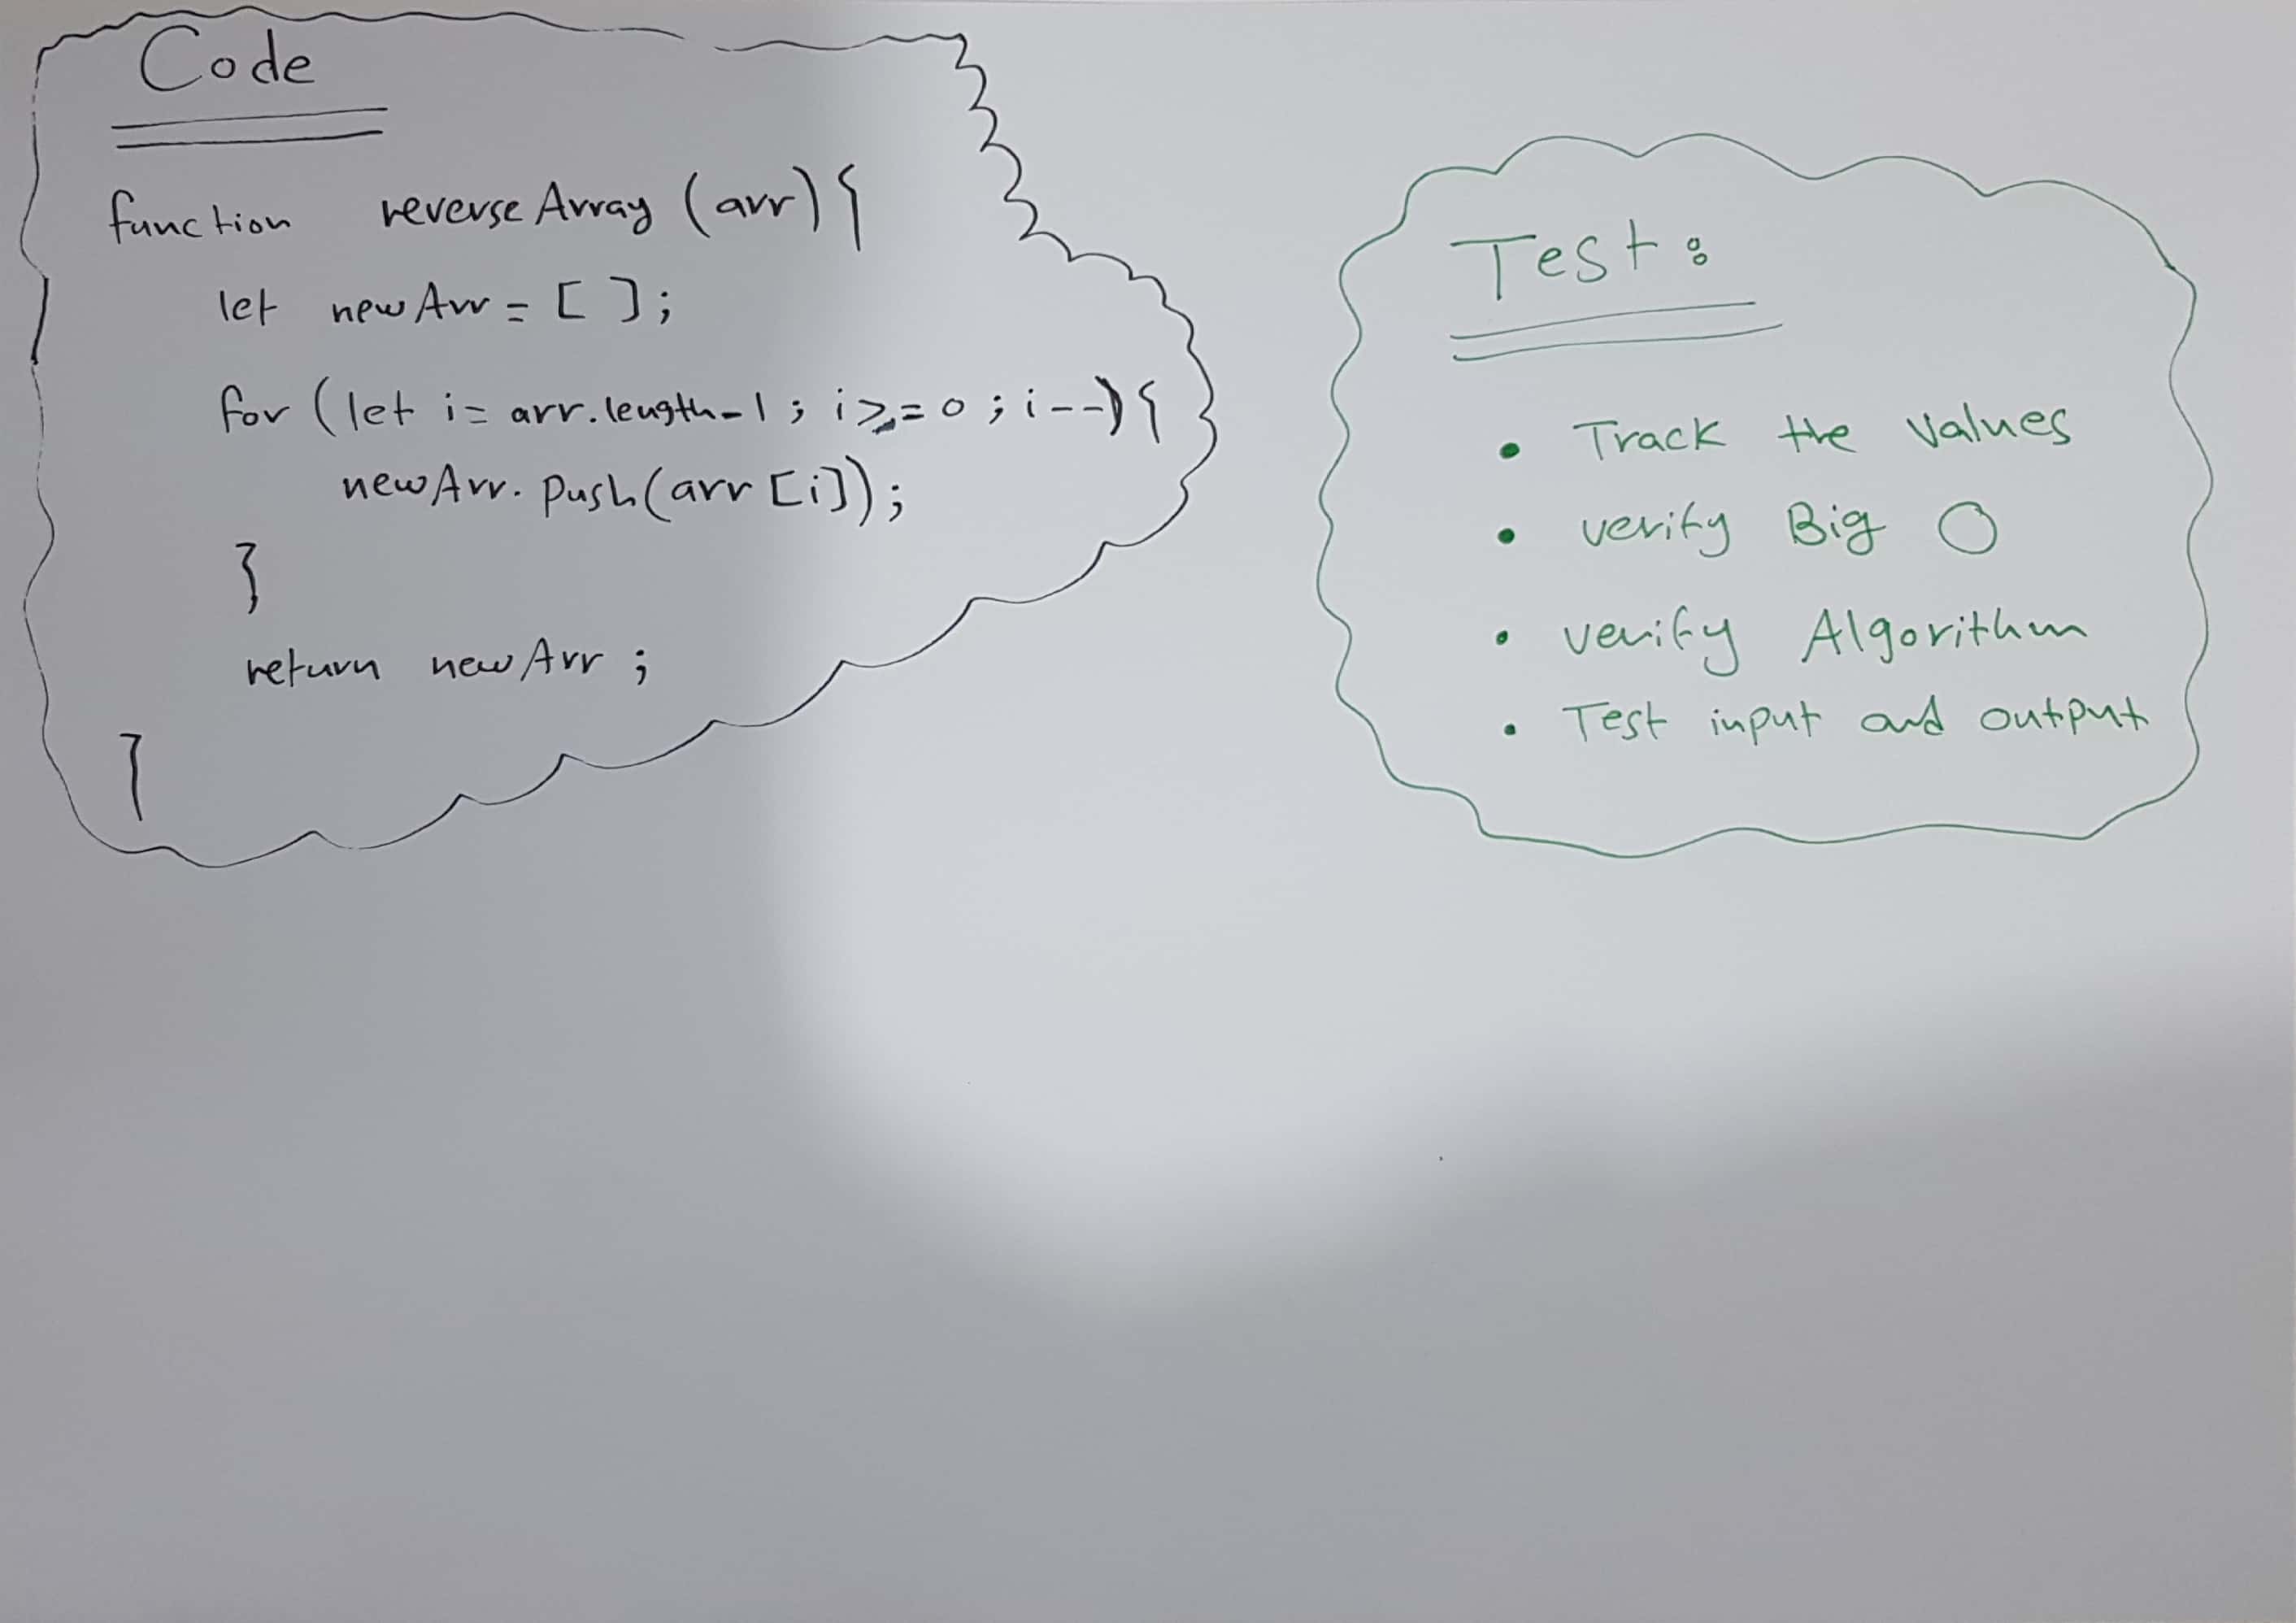 Code
function reverseArray (arr) {
let newArr = [ ];
for ( let i = arr.length-1 ; i >= 0 ; i--) {
newArr. push(arr [i]);
}
return newArr ;
}
Test:
• Track the values
• verify Big O
• verify Algorithm
• Test input and output